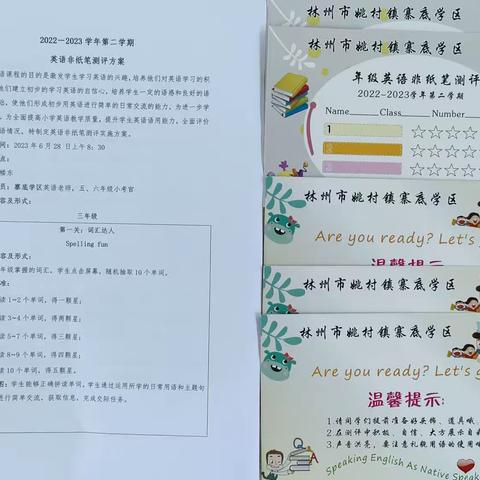 2022—2023学年第二学期
英语非纸笔测评方案
语课程的目的是激发学生学习英语的兴趣,培养他们对英语学习的积
们建立初步的学习英语的自信心,培养学生一定的语感和良好的语
础,使他们形成初步用英语进行简单的日常交流的能力,为进一步学
。为全面提高小学英语教学质量,提升学生英语语用能力,全面评价
语情况,特制定英语非纸笔测评实施方案。
间:2023年6月28日上午8:30
点:
楼东
员:寨底学区英语老师,五、六年级小考官
容及形式:
三年级
第一关:词汇达人
Spelling fun
容及形式:
年级掌握的词汇,学生点击屏幕,随机抽取10个单词。
准:
读1-2个单词,得一颗星;
读3-4个单词,得两颗星;
读5-7个单词,得三颗星;
读8-9个单词,得四颗星;
读10个单词,得五颗星。
图:学生能够正确拼读单词,学生通过运用所学的日常用语和主题句
进行简单交流、获取信息,完成交际任务。
林州市姚村镇寨底学区
林州市姚村镇寨底学区
年级英语非纸笔测评
2022-2023学年第二学期
Name Class Number
1
林州市姚村镇寨底学区
Are you ready? Let's g
温馨提示:
林州市姚村镇寨底学区
林州市姚村镇寨底学区
Are you ready? Let's g
温馨提示:
1.请同学们提前准备好头饰、道具哦
2.在测评中积极、自信、大方展示自
3.声音洪亮,要注意礼貌用语的使用哦
Speaking English As Native Speak